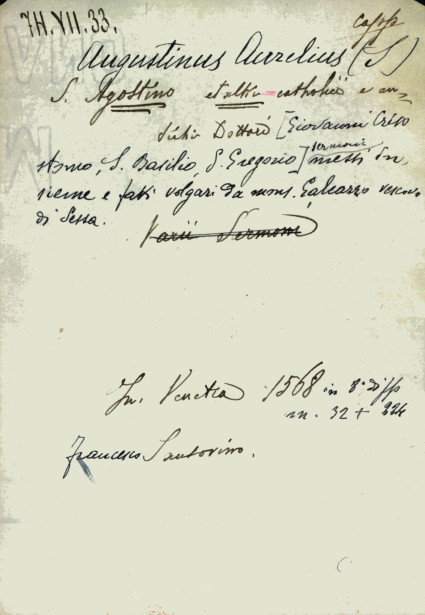 7H.VII.33.
Augustinus Aurelius (S)
S. Agostino et altri catholici e an-
tichi Dottori [Giovanni Criso
stomo, S. Basilio, S. Gregorio] sermoni messi in-
sieme e fatti volgari da mons. Galeazzo vescovo
di Sessa.
Varii Sermoni
In Venetia 1568 in 8°
m. 32 + 224
Francesco Sansovino.